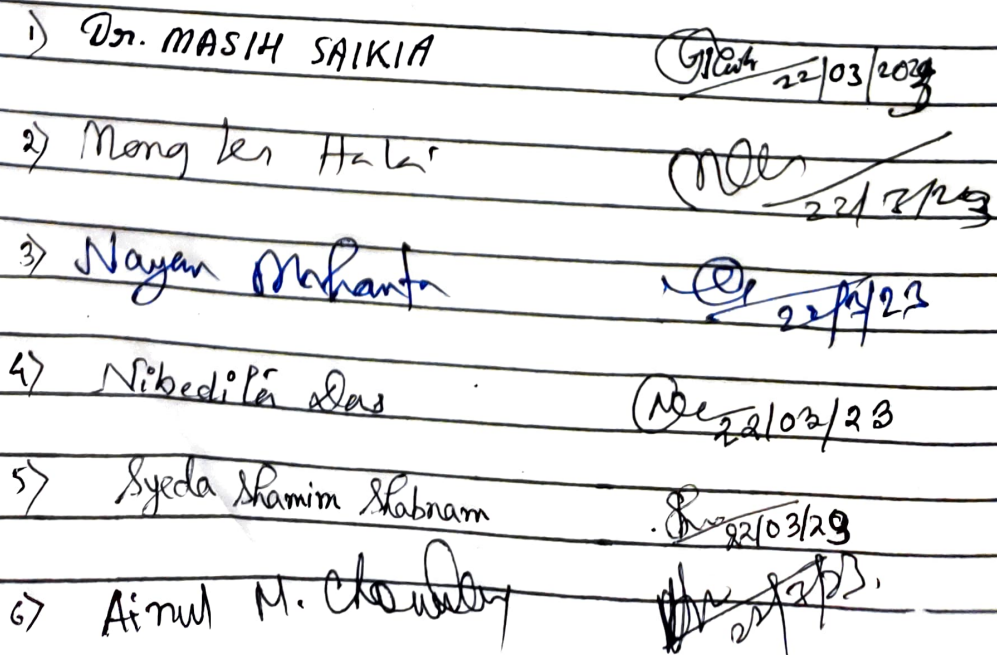 1) Dr. MASIH SAIKIA 22/03/2023
2) 22/3/23
3) Nayan Mahanta 22/3/23
4) Nibedita Das 22/03/23
5) Syeda Shamim Shabnam 22/03/23
6) Ainul M. Choudhury 22/3/23.